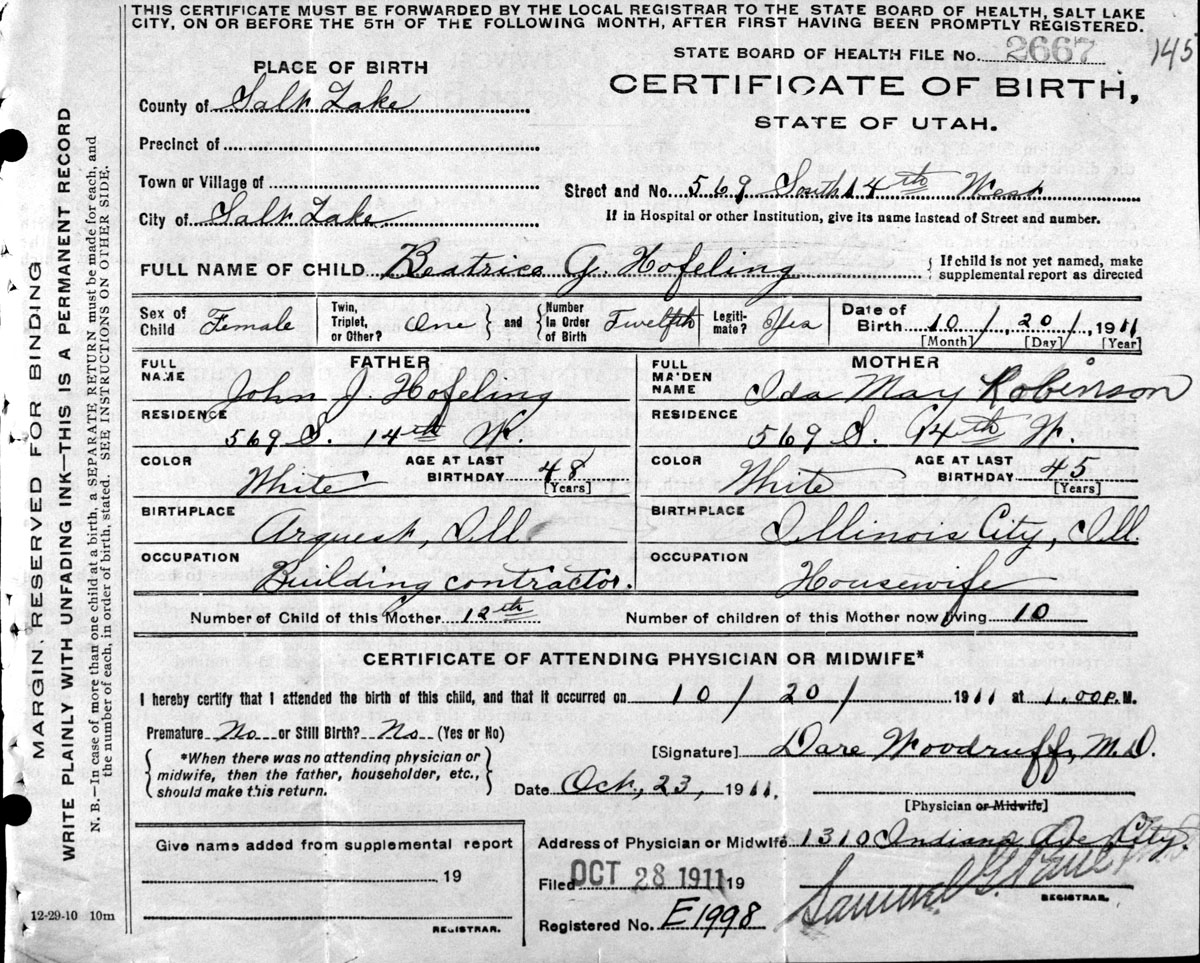 THIS CERTIFICATE MUST BE FORWARDED BY THE LOCAL REGISTRAR TO THE STATE BOARD OF HEALTH, SALT LAKE
CITY, ON OR BEFORE THE 5TH OF THE FOLLOWING MONTH, AFTER FIRST HAVING BEEN PROMPTLY REGISTERED.
STATE BOARD OF HEALTH FILE No. 2667
145
CERTIFICATE OF BIRTH,
STATE OF UTAH.
PLACE OF BIRTH
County of Salt Lake
Precinct of
Town or Village of
City of Salt Lake
Street and No. 569 South 14th West
If in Hospital or other Institution, give its name instead of Street and number.
FULL NAME OF CHILD Beatrice G. Hofeling
{ If child is not yet named, make
supplemental report as directed
Sex of Child Female
Twin, Triplet, or Other? One } and { Number In Order of Birth Twelfth
Legiti-mate? Yes
Date of Birth 10 / 20 / 1911
[Month] [Day] [Year]
FATHER
FULL NAME John J. Hofeling
RESIDENCE 569 S. 14th W.
COLOR White AGE AT LAST BIRTHDAY 48 [Years]
BIRTHPLACE Ill.
OCCUPATION Building contractor.
MOTHER
FULL MAIDEN NAME Ida May Robinson
RESIDENCE 569 S. 14th W.
COLOR White AGE AT LAST BIRTHDAY 45 [Years]
BIRTHPLACE Illinois City, Ill.
OCCUPATION Housewife
Number of Child of this Mother 12th Number of children of this Mother now living 10
CERTIFICATE OF ATTENDING PHYSICIAN OR MIDWIFE*
I hereby certify that I attended the birth of this child, and that it occurred on 10 / 20 / 1911 at 1.00 P. M.
Premature No or Still Birth? No (Yes or No)
{ *When there was no attending physician or
midwife, then the father, householder, etc.,
should make this return. }
[Signature] Dare Woodruff, M.D.
Date Oct, 23, 1911.
[Physician or Midwife]
Give name added from supplemental report
19
REGISTRAR.
Address of Physician or Midwife 1310 Indiana Ave City.
Filed OCT 28 1911 19
Samuel G. Paul
REGISTRAR.
Registered No. E1998
12-29-10 10m
MARGIN, RESERVED FOR BINDING
WRITE PLAINLY WITH UNFADING INK—THIS IS A PERMANENT RECORD
N. B.—In case of more than one child at a birth, a SEPARATE RETURN must be made for each, and
the number of each, in order of birth, stated. SEE INSTRUCTIONS ON OTHER SIDE.